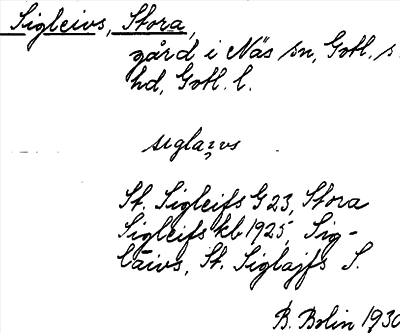 Sigleivs, Stora,
gård i Näs sn, Gotl. s.
hd, Gotl. l.
siglaɪvs
St. Sigleifs G 23, Stora
Sigleifs kb 1925, Sig-
laivs, St. Siglajfs S.
B. Bolin 1930